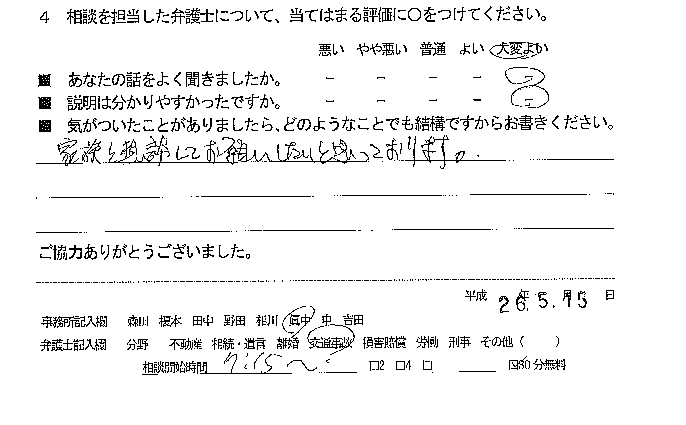 4 相談を担当した弁護士について、当てはまる評価に○をつけてください。
悪い やや悪い 普通 よい 大変よい
■ あなたの話をよく聞きましたか。 - - - - -
■ 説明は分かりやすかったですか。 - - - - -
■ 気がついたことがありましたら、どのようなことでも結構ですからお書きください。
家族と相談してお願いしたいと思っております。
ご協力ありがとうございました。
平成 26.5.15 日
事務所記入欄 森川 榎本 田中 野田 相川 眞中 申 吉田
弁護士記入欄 分野 不動産 相続・遺言 離婚 交通事故 損害賠償 労働 刑事 その他( )
相談開始時間 7:15~ □2 □4 □ 分無料